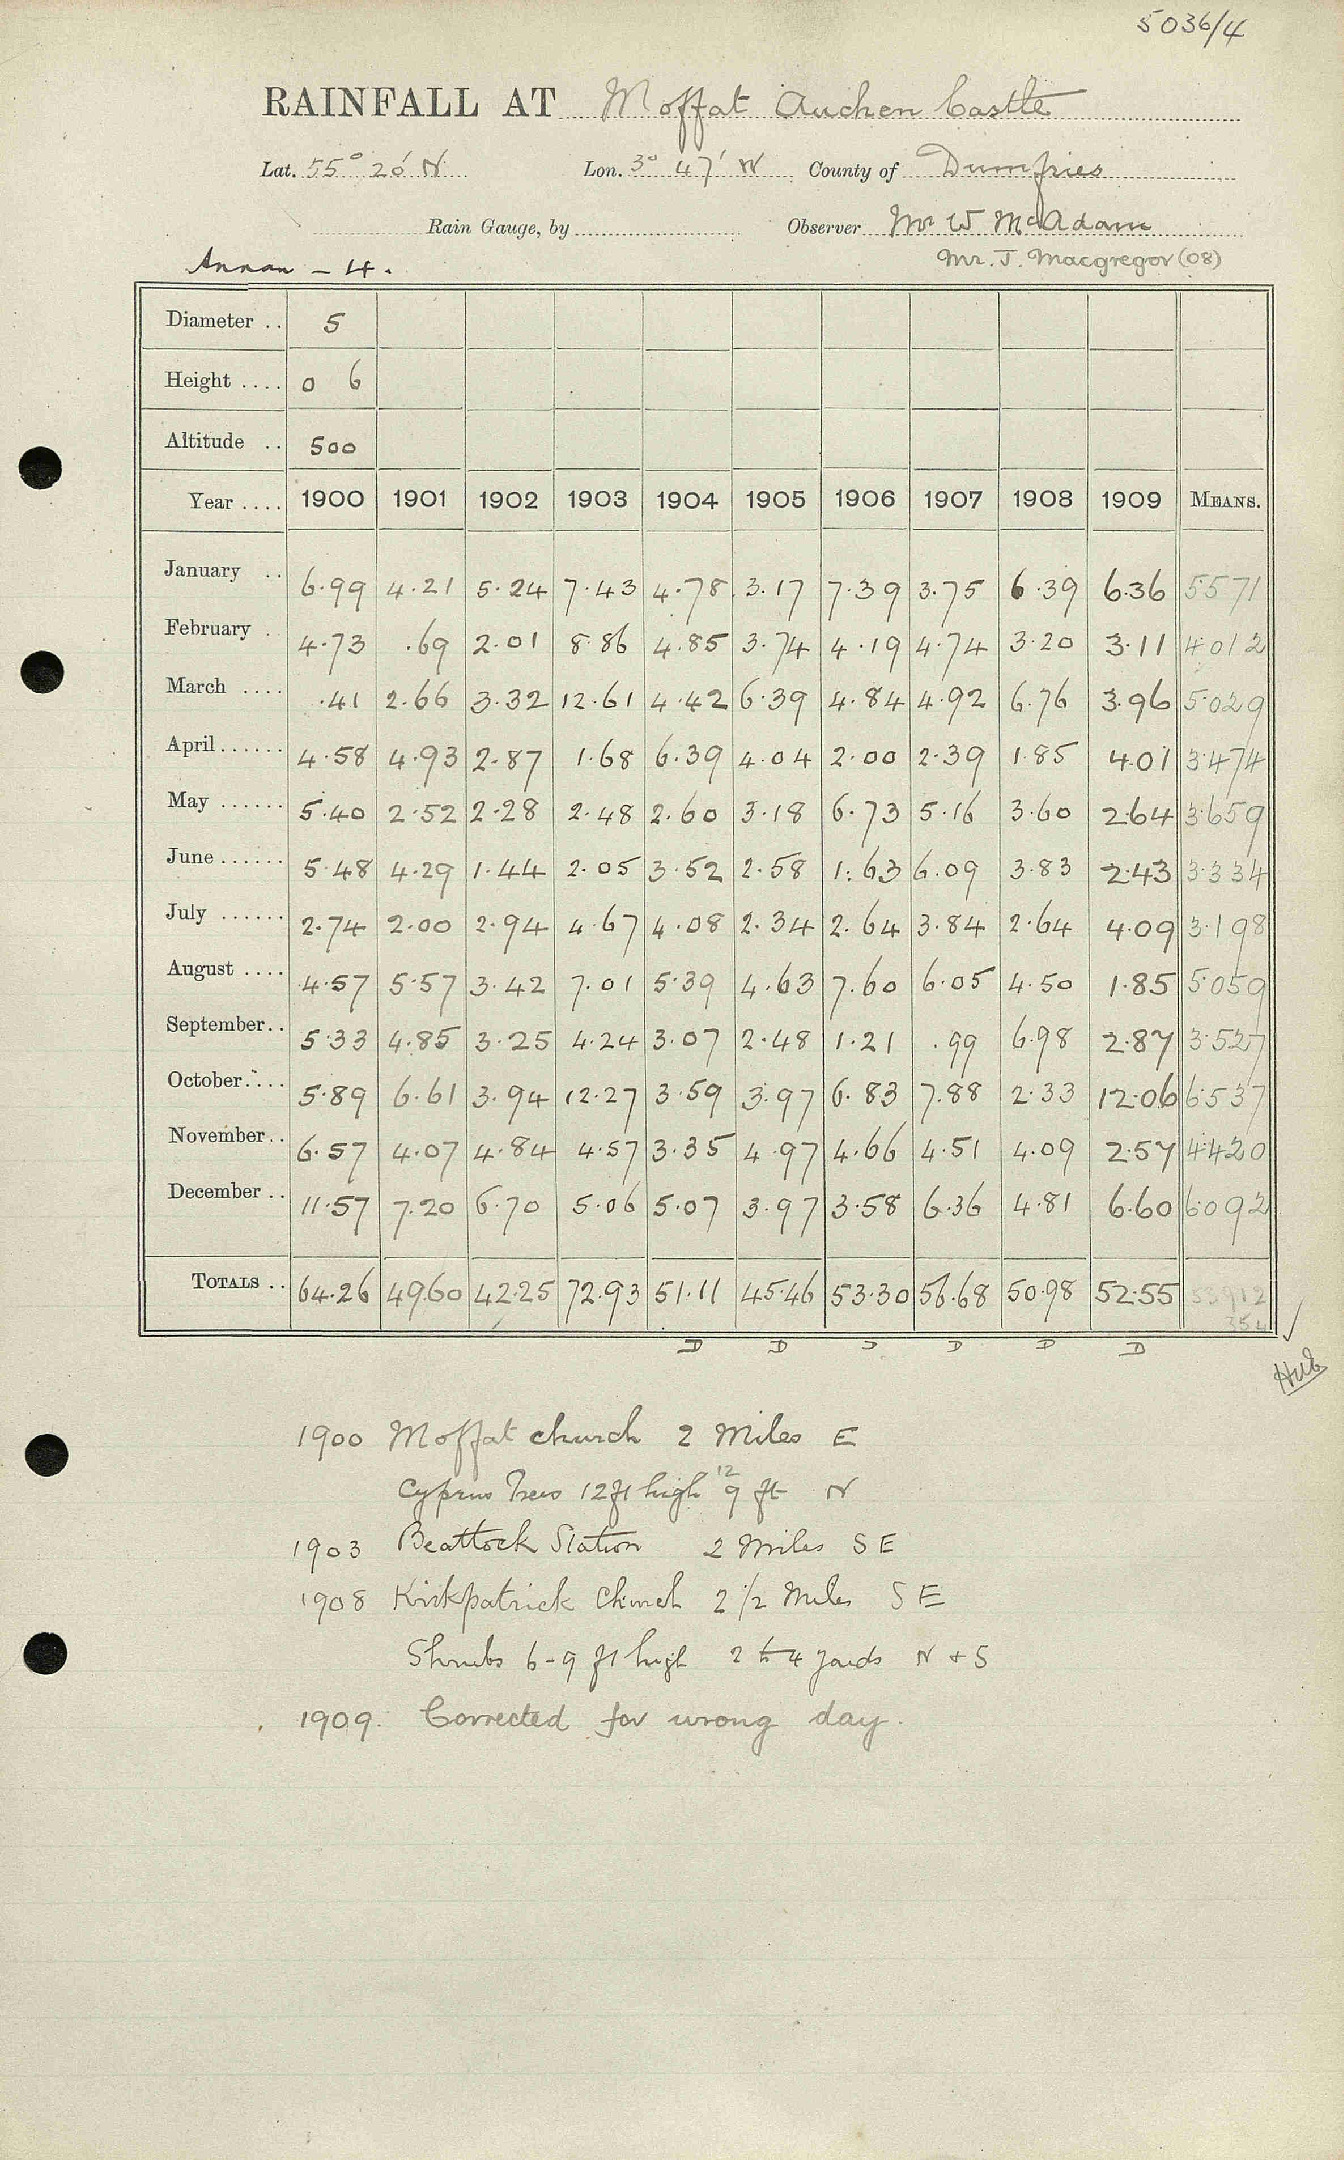 5036/4
RAINFALL AT Moffat Auchen Castle
Lat. 55° 20' N Lon. 3° 47' W County of Dumfries
Rain Gauge, by Observer Mr W McAdam
Annan - 4. Mr. J. Macgregor (08)
Diameter .. 5
Height .... 0 6
Altitude .. 500
Year .... 1900 1901 1902 1903 1904 1905 1906 1907 1908 1909 MEANS.
January .. 6.99 4.21 5.24 7.43 4.78 3.17 7.39 3.75 6.39 6.36 5.571
February . 4.73 .69 2.01 8.86 4.85 3.74 4.19 4.74 3.20 3.11 4.012
March .... .41 2.66 3.32 12.61 4.42 6.39 4.84 4.92 6.76 3.96 5.029
April...... 4.58 4.93 2.87 1.68 6.39 4.04 2.00 2.39 1.85 4.01 3.474
May ...... 5.40 2.52 2.28 2.48 2.60 3.18 6.73 5.16 3.60 2.64 3.659
June ...... 5.48 4.29 1.44 2.05 3.52 2.58 1.63 6.09 3.83 2.43 3.334
July ...... 2.74 2.00 2.94 4.67 4.08 2.34 2.64 3.84 2.64 4.09 3.198
August .... 4.57 5.57 3.42 7.01 5.39 4.63 7.60 6.05 4.50 1.85 5.059
September.. 5.33 4.85 3.25 4.24 3.07 2.48 1.21 .99 6.98 2.87 3.527
October.... 5.89 6.61 3.94 12.27 3.59 3.97 6.83 7.88 2.33 12.06 6.537
November.. 6.57 4.07 4.84 4.57 3.35 4.97 4.66 4.51 4.09 2.57 4.420
December .. 11.57 7.20 6.70 5.06 5.07 3.97 3.58 6.36 4.81 6.60 6.092
TOTALS .. 64.26 49.60 42.25 72.93 51.11 45.46 53.30 56.68 50.98 52.55 53.912
354
D D D D D D
HUB
1900 Moffat church 2 Miles E
Cyprus Trees 12ft high 12 9 ft N
1903 Beattock Station 2 Miles S E
1908 Kirkpatrick Church 2 1/2 Miles S E
Shrubs 6-9 ft high 2 to 4 yards N + S
1909. Corrected for wrong day.